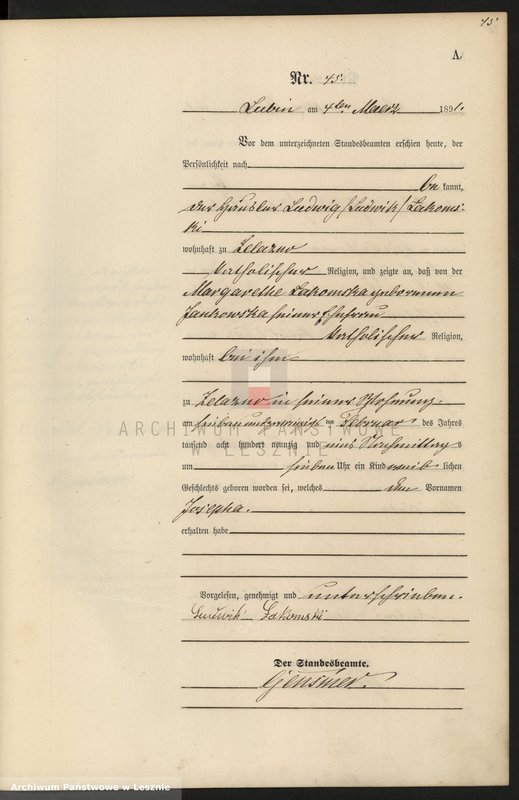 45
A.
Nr. 45.
Lubin am 4ten Maerz 1891.
Vor dem unterzeichneten Standesbeamten erschien heute, der
Persönlichkeit nach
be kannt,
der Häusler Ludwig /Ludwik/ Lakoms-
ki
wohnhaft zu Zelazno
katholischer Religion, und zeigte an, daß von der
Margarethe Lakomska geborenen
Jankowska seiner Ehefrau
katholischer Religion,
wohnhaft bei ihm
zu Zelazno in seiner Wohnung
am sieben und zwanzigsten Februar des Jahres
tausend acht hundert neunzig und eins Nachmittags
um sieben Uhr ein Kind weib lichen
Geschlechts geboren worden sei, welches den Vornamen
Josepha.
erhalten habe
Vorgelesen, genehmigt und unterschrieben.
Ludwik Lakomski
Der Standesbeamte.
ARCHIWUM PAŃSTWOWE
W LESZNIE
Archiwum Państwowe w Lesznie